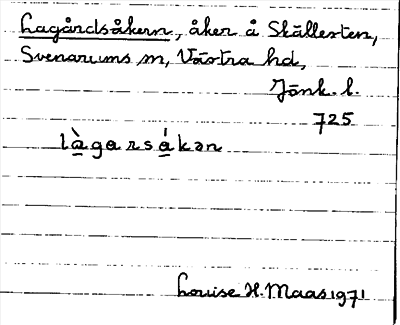 Lagårdsåkern, åker å Skällesten,
Svenarums sn, Västra hd,
Jönk. l.
725
là̱garsǻ̱kən
Louise H. Maas 1971